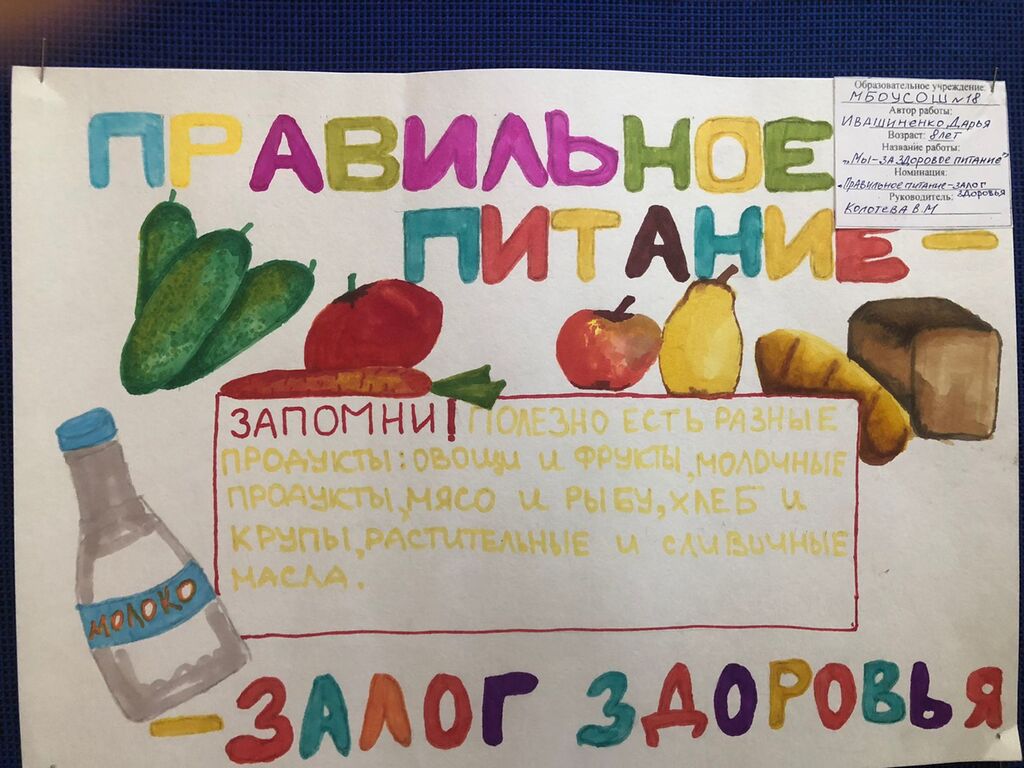 ПРАВИЛЬНОЕ
ПИТАНИЕ –
Образовательное учреждение:
МБОУСОШ №18
Автор работы:
ИВАЩИНЕНКО ДАРЬЯ
Возраст: 8 лет
Название работы:
„МЫ-ЗА ЗДОРОВОЕ ПИТАНИЕ"
Номинация:
ПРАВИЛЬНОЕ ПИТАНИЕ-ЗАЛОГ
ЗДОРОВЬЯ
Руководитель:
КОЛОТЕВА В.М
ЗАПОМНИ! ПОЛЕЗНО ЕСТЬ РАЗНЫЕ
ПРОДУКТЫ: ОВОЩИ И ФРУКТЫ, МОЛОЧНЫЕ
ПРОДУКТЫ, МЯСО И РЫБУ, ХЛЕБ И
КРУПЫ, РАСТИТЕЛЬНЫЕ И СЛИВИЧНЫЕ
МАСЛА.
МОЛОКО
– ЗАЛОГ ЗДОРОВЬЯ